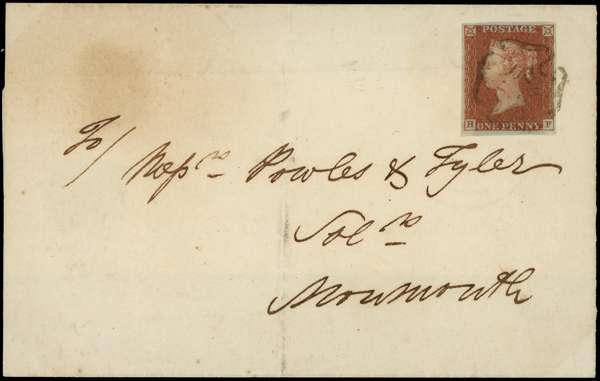 POSTAGE
H F
ONE PENNY
To/ Messrs Powles & Tyler
Solrs
Monmouth